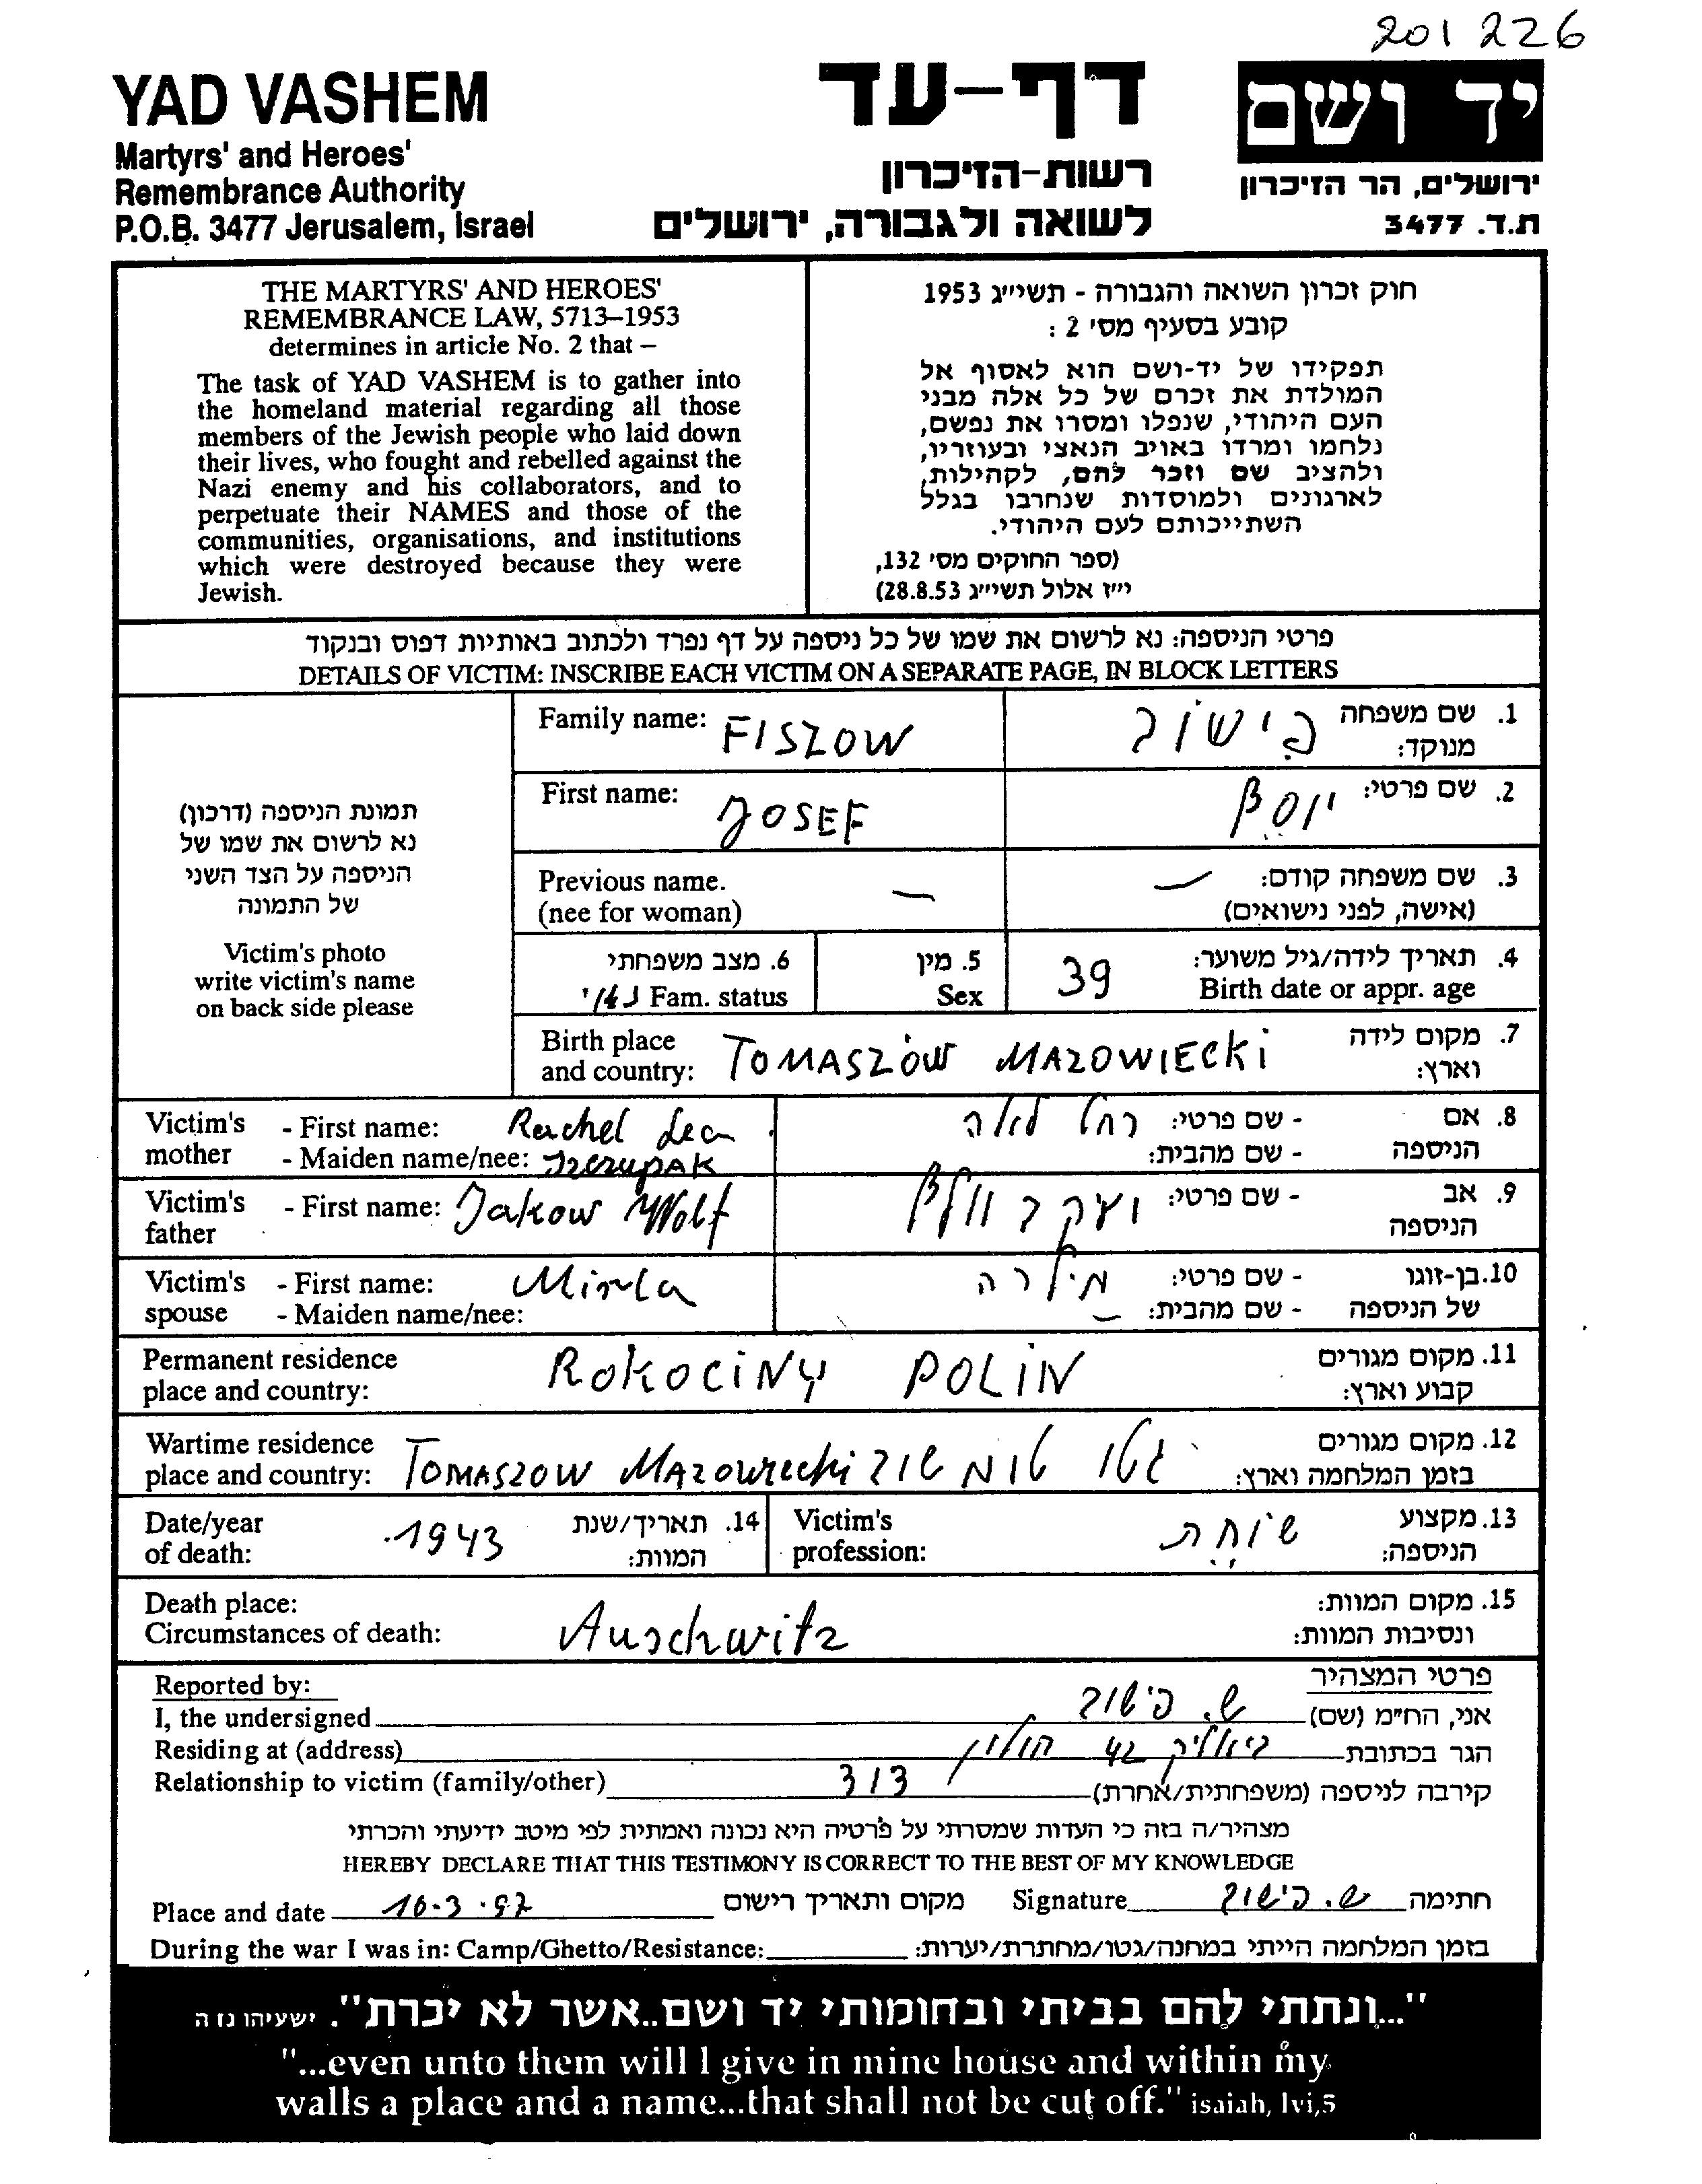 201 226
YAD VASHEM
Martyrs' and Heroes'
Remembrance Authority
P.O.B. 3477 Jerusalem, Israel
דף-עד
רשות-הזיכרון
לשואה ולגבורה, ירושלים
יד ושם
ירושלים, הר הזיכרון
ת.ד. 3477
THE MARTYRS' AND HEROES'
REMEMBRANCE LAW, 5713–1953
determines in article No. 2 that –
The task of YAD VASHEM is to gather into
the homeland material regarding all those
members of the Jewish people who laid down
their lives, who fought and rebelled against the
Nazi enemy and his collaborators, and to
perpetuate their NAMES and those of the
communities, organisations, and institutions
which were destroyed because they were
Jewish.
חוק זכרון השואה והגבורה - תשי"ג 1953
קובע בסעיף מס' 2 :
תפקידו של יד-ושם הוא לאסוף אל
המולדת את זכרם של כל אלה מבני
העם היהודי, שנפלו ומסרו את נפשם,
נלחמו ומרדו באויב הנאצי ובעוזריו,
ולהציב שם וזכר להם, לקהילות,
לארגונים ולמוסדות שנחרבו בגלל
השתייכותם לעם היהודי.
(ספר החוקים מס' 132,
י"ז אלול תשי"ג 28.8.53)
פרטי הניספה: נא לרשום את שמו של כל ניספה על דף נפרד ולכתוב באותיות דפוס ובנקוד
DETAILS OF VICTIM: INSCRIBE EACH VICTIM ON A SEPARATE PAGE, IN BLOCK LETTERS
תמונת הניספה (דרכון)
נא לרשום את שמו של
הניספה על הצד השני
של התמונה
Victim's photo
write victim's name
on back side please
Family name: FISZOW פישוב 1. שם משפחה
מנוקד:
First name: JOSEF יוסף 2. שם פרטי:
Previous name. — — 3. שם משפחה קודם:
(nee for woman) (אישה, לפני נישואים)
6. מצב משפחתי 5. מין 39 4. תאריך לידה/גיל משוער:
נשוי Fam. status Sex Birth date or appr. age
Birth place TOMASZÓW MAZOWIECKI 7. מקום לידה
and country: וארץ:
Victim's - First name: Rachel Lea רחל לאה - שם פרטי: 8. אם
mother - Maiden name/nee: - שם מהבית: הניספה
Victim's - First name: Jakow Wolf יעקב וולף - שם פרטי: 9. אב
father הניספה
Victim's - First name: Mirla מירלה - שם פרטי: 10. בן-זוגו
spouse - Maiden name/nee: — - שם מהבית: של הניספה
Permanent residence ROKOCINY POLIN 11. מקום מגורים
place and country: קבוע וארץ:
Wartime residence 12. מקום מגורים
place and country: TOMASZOW MAZOWIECKI גטו טומשוב בזמן המלחמה וארץ:
Date/year 1943 14. תאריך/שנת Victim's שוחט 13. מקצוע
of death: המוות: profession: הניספה:
Death place: 15. מקום המוות:
Circumstances of death: Auschwitz ונסיבות המוות:
Reported by: פרטי המצהיר
I, the undersigned ש. פישוב אני, הח"מ (שם)
Residing at (address) ביאליק 42 חולון הגר בכתובת
Relationship to victim (family/other) דוד קירבה לניספה (משפחתית/אחרת)
מצהיר/ה בזה כי העדות שמסרתי על פרטיה היא נכונה ואמתית לפי מיטב ידיעתי והכרתי
HEREBY DECLARE THAT THIS TESTIMONY IS CORRECT TO THE BEST OF MY KNOWLEDGE
Place and date 16.3.97 מקום ותאריך רישום Signature ש. פישוב חתימה
During the war I was in: Camp/Ghetto/Resistance: בזמן המלחמה הייתי במחנה/גטו/מחתרת/יערות:
"...ונתתי להם בביתי ובחומותי יד ושם..אשר לא יכרת". ישעיהו נו ה
"...even unto them will I give in mine house and within my
walls a place and a name...that shall not be cut off." isaiah, lvi,5